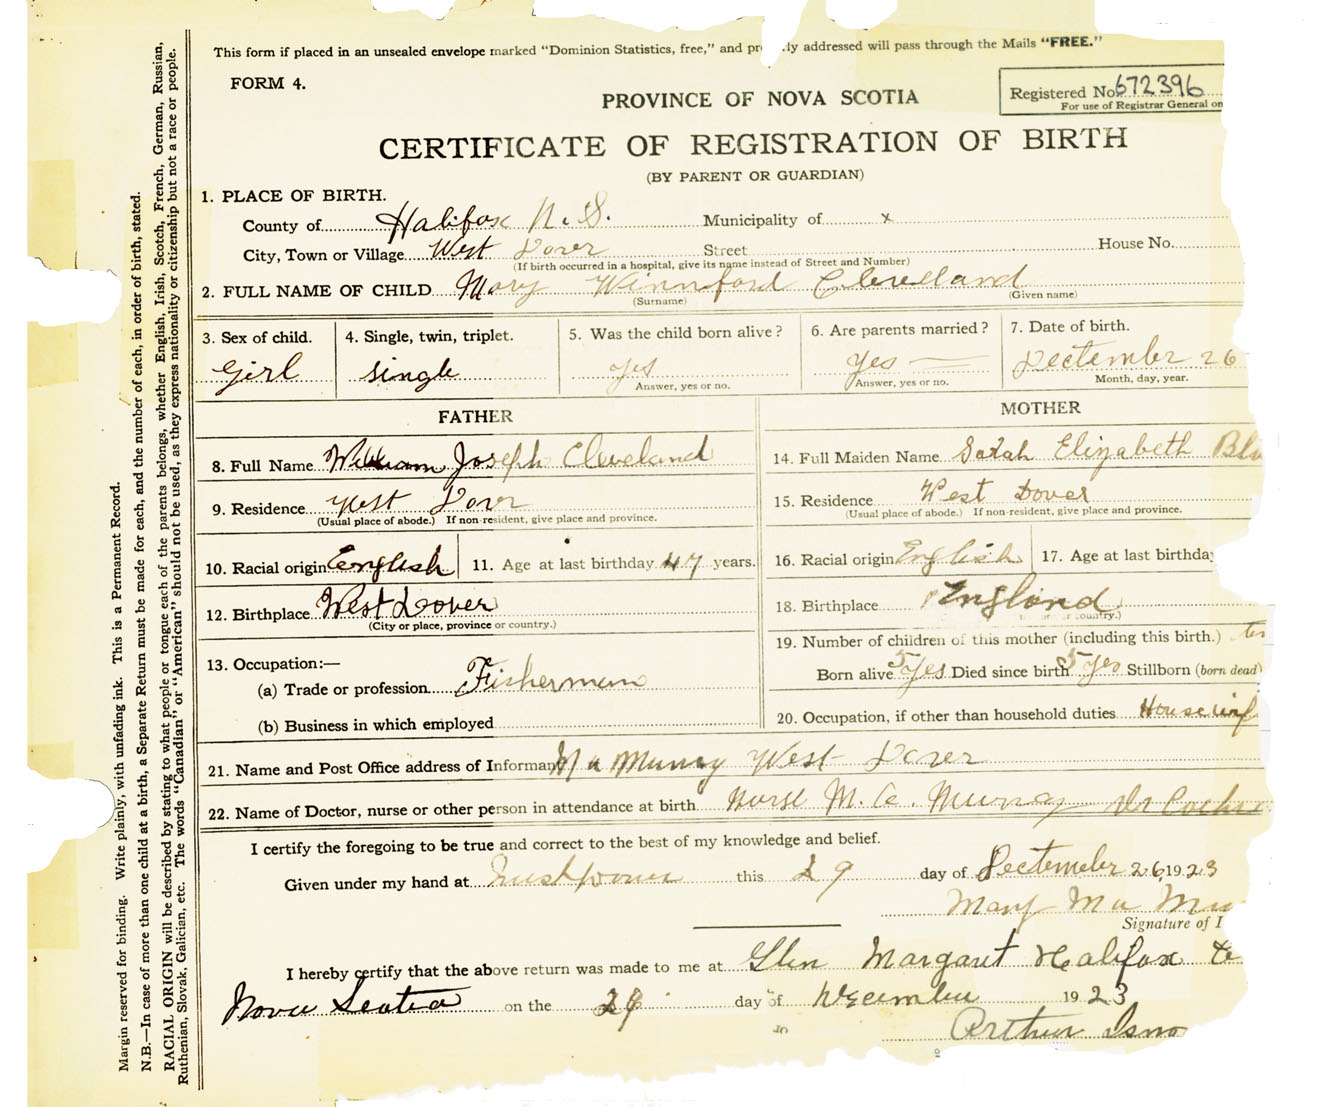 This form if placed in an unsealed envelope marked "Dominion Statistics, free," and pr ly addressed will pass through the Mails "FREE."
FORM 4.
Registered No. 672396
For use of Registrar General on
PROVINCE OF NOVA SCOTIA
CERTIFICATE OF REGISTRATION OF BIRTH
(BY PARENT OR GUARDIAN)
1. PLACE OF BIRTH.
County of Halifax N.S. Municipality of x
City, Town or Village West Dover Street House No.
(If birth occurred in a hospital, give its name instead of Street and Number)
2. FULL NAME OF CHILD Mary Winnford Cleveland
(Surname) (Given name)
3. Sex of child. 4. Single, twin, triplet. 5. Was the child born alive? 6. Are parents married? 7. Date of birth.
Girl single yes yes Dectember 26
Answer, yes or no. Answer, yes or no. Month, day, year.
FATHER MOTHER
8. Full Name William Joseph Cleveland 14. Full Maiden Name Sarah Elizabeth
9. Residence West Dover 15. Residence West Dover
(Usual place of abode.) If non-resident, give place and province. (Usual place of abode.) If non-resident, give place and province.
10. Racial origin English 11. Age at last birthday 47 years. 16. Racial origin English 17. Age at last birthday
12. Birthplace West Dover 18. Birthplace England
(City or place, province or country.) or country.)
19. Number of children of this mother (including this birth.)
13. Occupation:—
Born alive 5 yes Died since birth 5 yes Stillborn (born dead)
(a) Trade or profession Fisherman
(b) Business in which employed 20. Occupation, if other than household duties Housewif
21. Name and Post Office address of Informan Murray West Dover
22. Name of Doctor, nurse or other person in attendance at birth Nurse M. A. Murray Dr Cochr
I certify the foregoing to be true and correct to the best of my knowledge and belief.
Given under my hand at this 29 day of Dectember 26 1923
Mary Ma Mu
Signature of I
I hereby certify that the above return was made to me at Glen Margaret Halifax Co
Nova Scotia on the 29 day of December 1923
Arthur Isno
Margin reserved for binding. Write plainly, with unfading ink. This is a Permanent Record.
N.B.—In case of more than one child at a birth, a Separate Return must be made for each, and the number of each, in order of birth, stated.
RACIAL ORIGIN will be described by stating to what people or tongue each of the parents belongs, whether English, Irish, Scotch, French, German, Russian,
Ruthenian, Slovak, Galician, etc. The words "Canadian" or "American" should not be used, as they express nationality or citizenship but not a race or people.